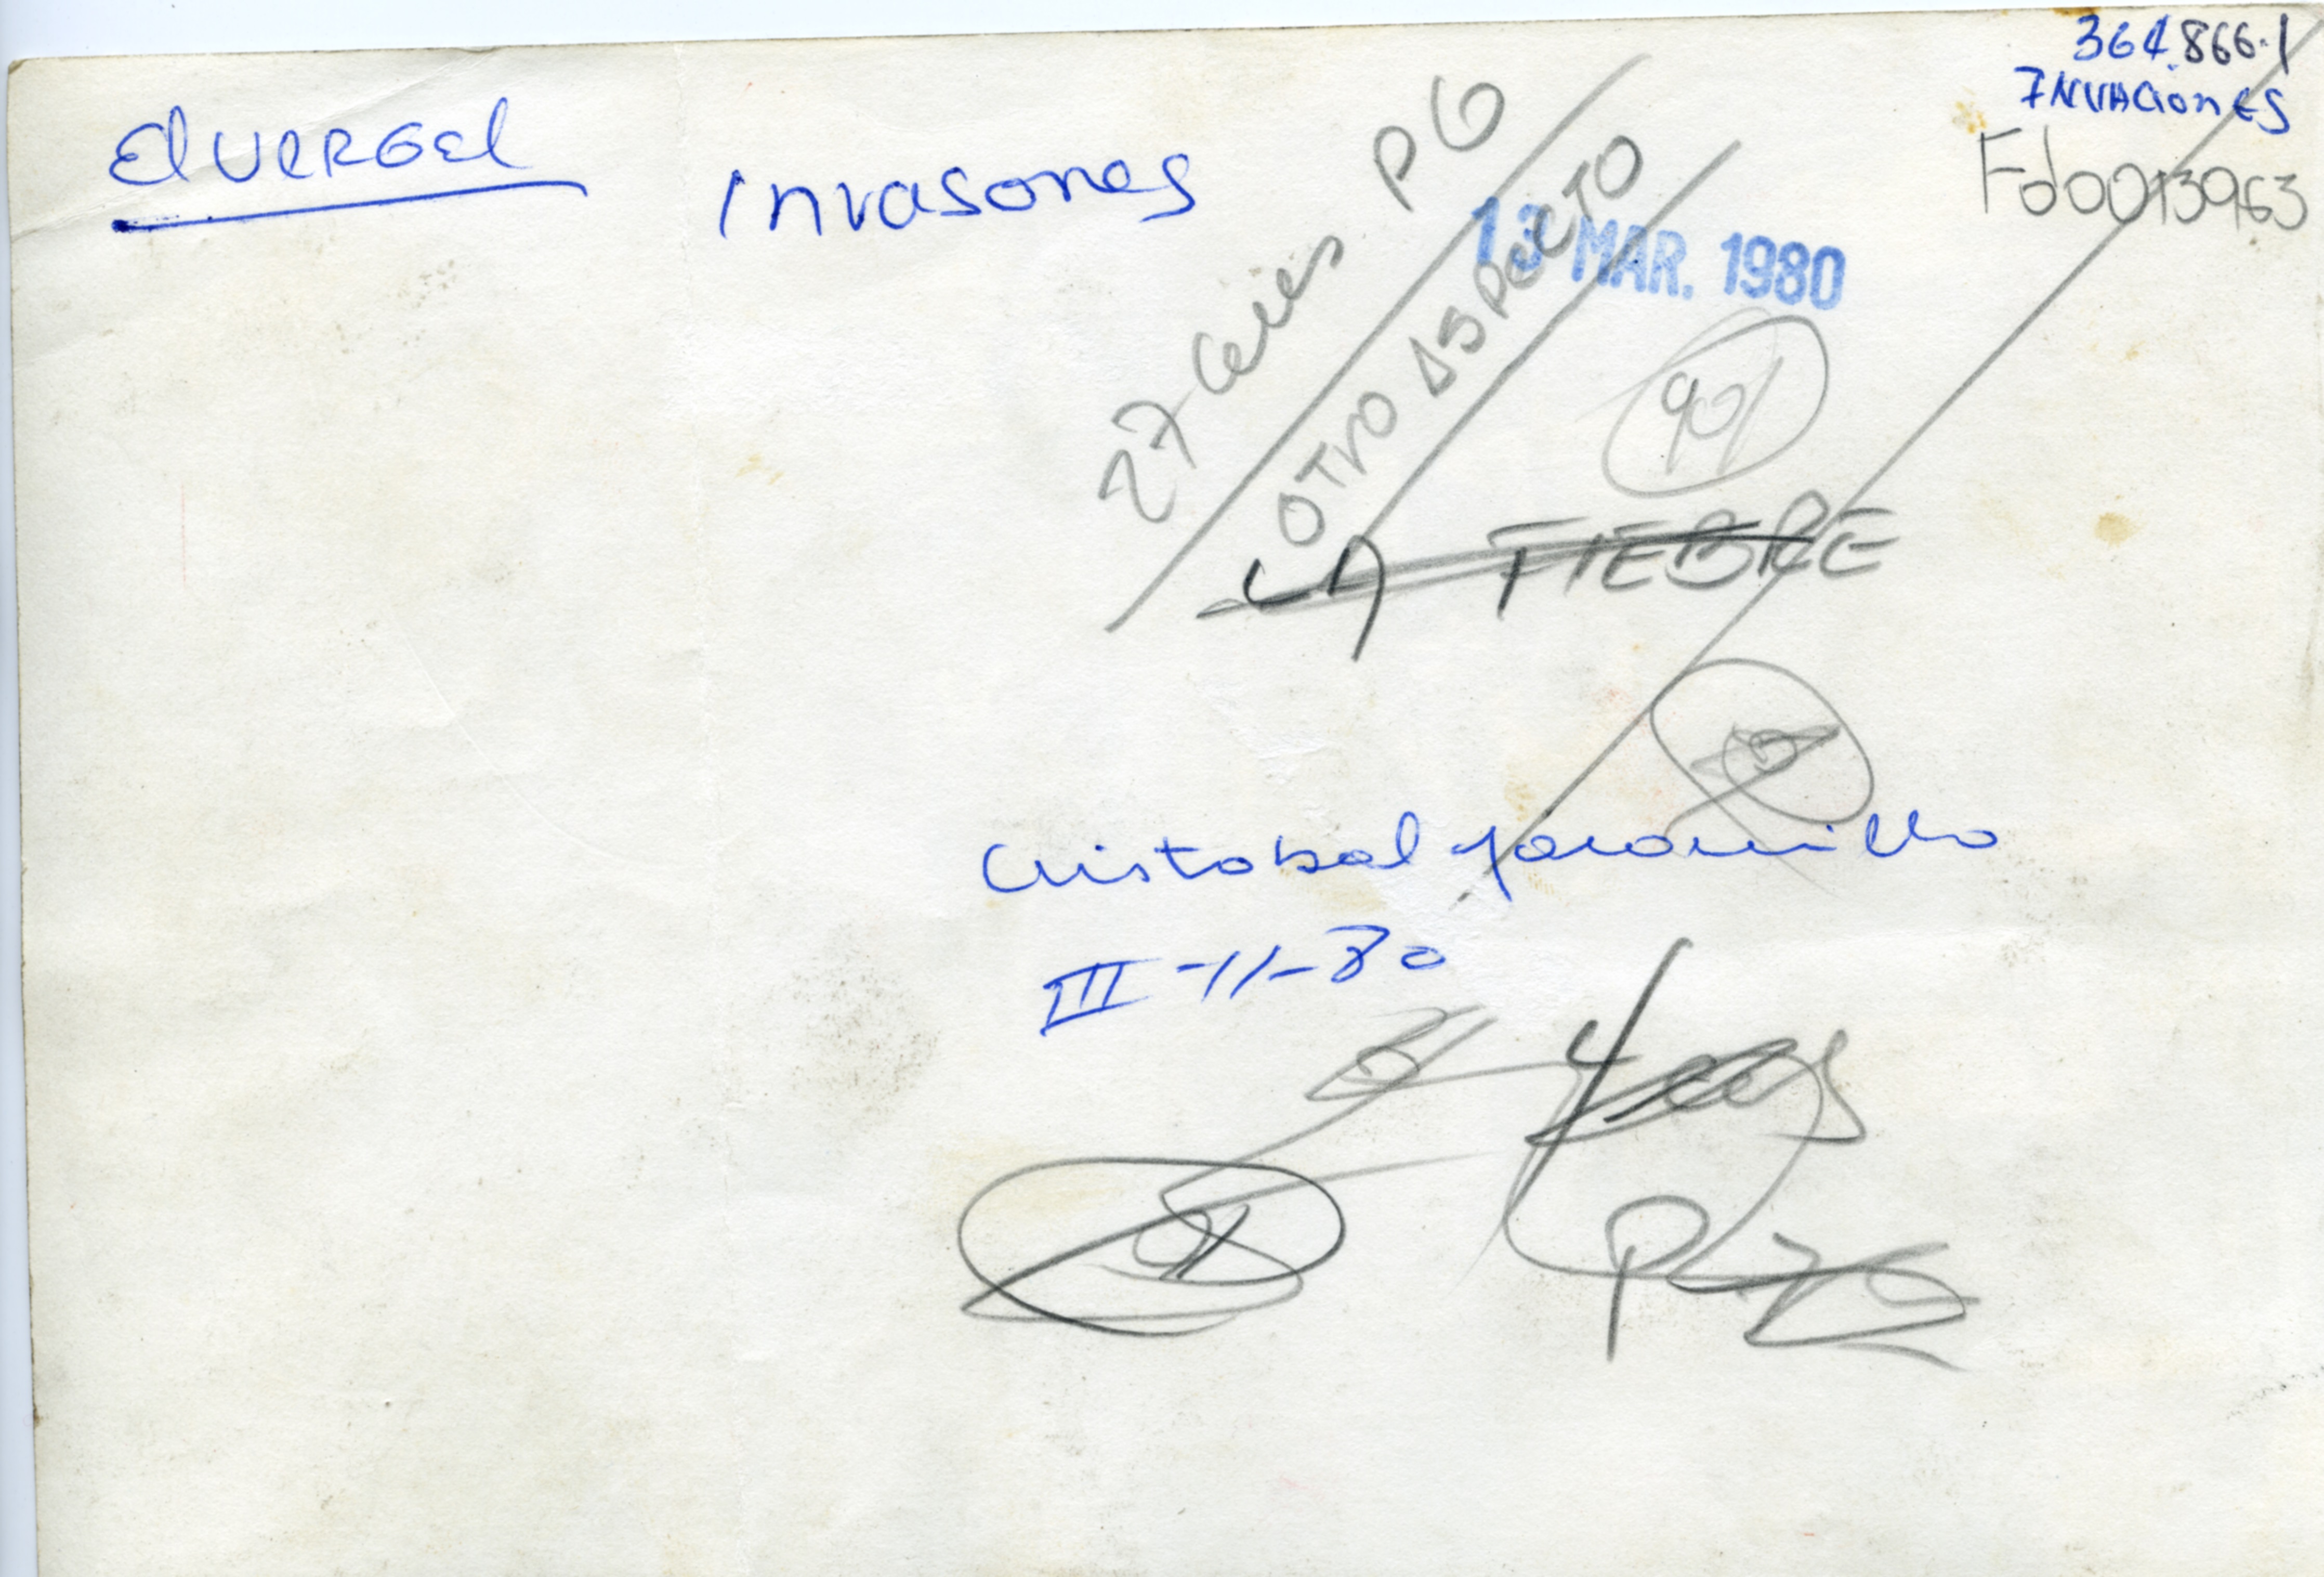 364.866.1
INVACIONES
Fd0013963
El VERGEL
Invasones
27 PG
OTRO ASPECTO
13 MAR. 1980
90
LA FIEBRE
Cristobal Jaramillo
III-11-80